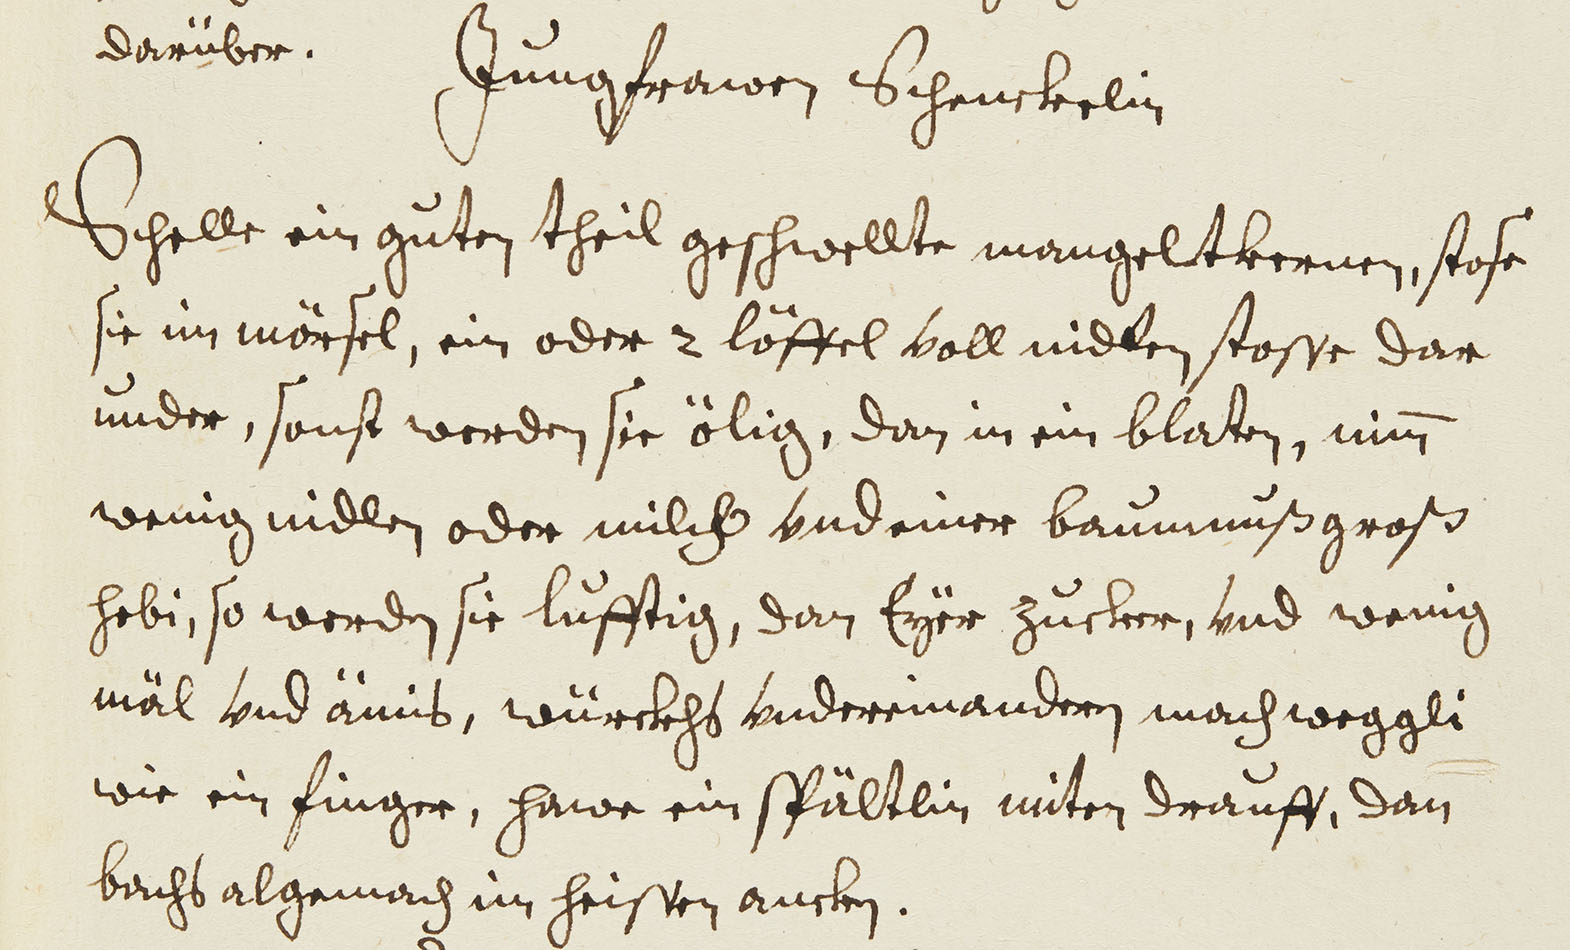 darüber.
Jungfrawen Schenckelin
Schelle ein guten theil geschwellte mangeltkernen, stose
sie im mörsel, ein oder 2 löffel voll nidlen stosse dar
under, sonst werden sie ölig, dan in ein blaten, nim̄
wenig nidlen oder milch vnd einer baumnuß groß
hebi, so werden sie lufftig, dan Eyer zucker, vnd wenig
mäl vnd änis, würckhs vndereinanderen mach weggli
wie ein finger, hawe ein spältlin miten drauff, dan
bachs algemach im heissen ancken.